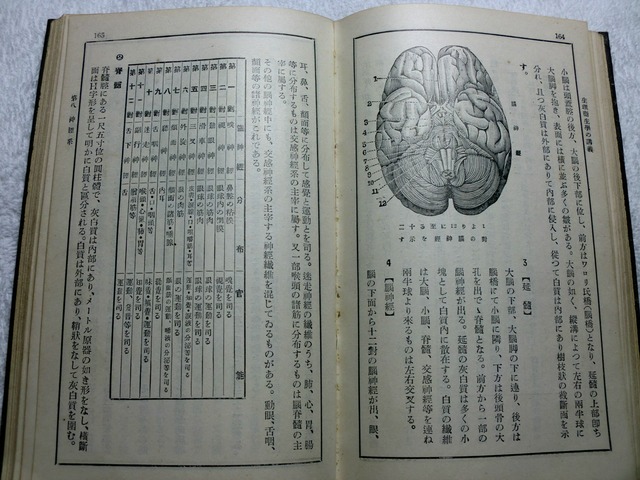 164
生理衞生學の講義
小腦は頭蓋腔の後方、大腦の後下部に位し、前方はワロリ氏橋(腦橋)となり、延髓の上部卽ち
大腦脚を抱き、表面には橫に並ぶ多くの皺がある。大腦の如く、縱溝によつて左右の兩半球に
分れ、且つ灰白質は外部にありて內部に侵入し、從つて白質は內部にあり樹枝狀の截斷面を示
す。
腦神經
1
2
3
4
5
6
7
8
9
10
11
12
3 【延髓】
大腦の下部、大腦脚の下に連り、後方は
腦橋にて小腦に隣り、下方は後頭骨の大
孔を出でゝ脊髓となる。前方から一部の
腦神經が出る。延髓の灰白質は多くの小
塊として白質內に散在する。白質の纖維
は大腦、小腦、脊髓、交感神經等を連ね
兩半球より來るものは左右交叉する。
4 【腦神經】
腦の下面から十二對の腦神經が出、眼、
165
第八 神經系
耳、鼻、舌、顏面等に分布して感覺と運動とを司る。迷走神經の纖維のうち、肺、心、胃、腸
等に分布するものは交感神經系の主宰に屬す。又一部喉頭の諸筋に分布するものは腦脊髓の主
宰に屬する。
その他の腦神經中にも、交感神經系の主宰する神經纖維を混じてゐるものがある。動眼、舌咽、
顏面等の腦神經がこれである。
腦神經 分布 官能
第一對 嗅神經 鼻腔の粘膜 嗅覺を司る
第二對 視神經 眼球內の網膜 視覺を司る
第三對 動眼神經 眼球の筋肉 眼の運動を司る
第四對 滑車神經 眼球の筋肉 眼の運動を司る
第五對 三叉神經
第六對 外旋神經 眼の筋肉 眼の運動を司る
第七對 顏面神經
第八對 聽神經 內耳 聽覺を司る
第九對 舌咽神經
第十對 迷走神經
第十一對 副行神經 運動を司る
第十二對 舌下神經 舌 運動を司る
② 脊髓
脊髓腔にある一尺五寸位の圓柱體で、灰白質は內部にあり、メートル原器の如き形をなし、橫斷
面はH字形を呈して明かに白質と區分される。白質は外部にあり、鞘狀をなして灰白質を圍む。